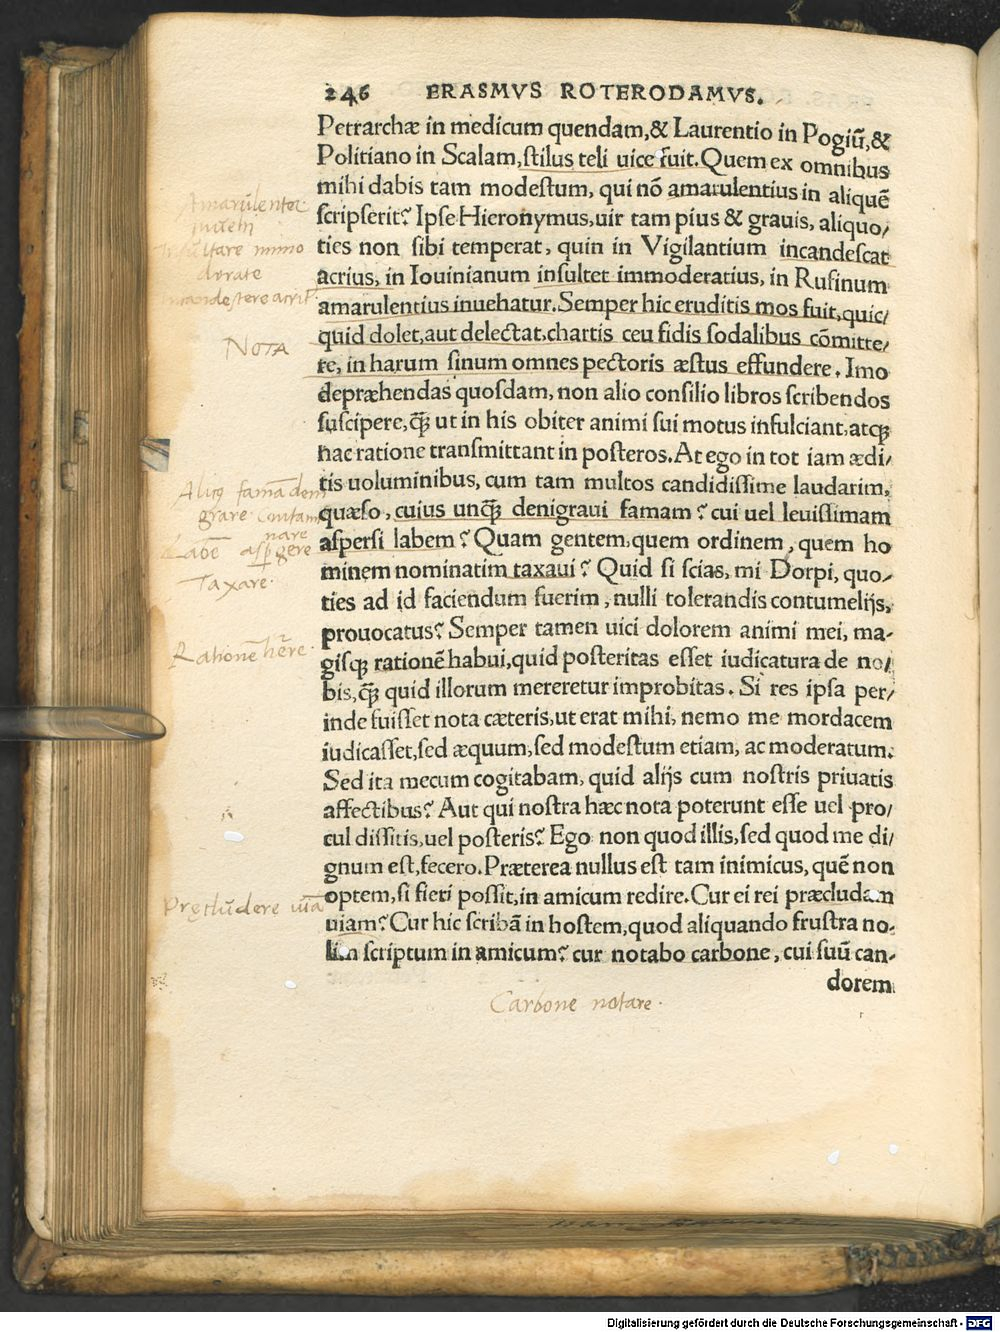 246 ERASMVS ROTERODAMVS.
Petrarchæ in medicum quendam,& Laurentio in Pogiū,&
Politiano in Scalam, stilus teli uice fuit. Quem ex omnibus
mihi dabis tam modestum, qui nō amarulentius in aliquē
scripserit? Ipse Hieronymus, uir tam pius & grauis, aliquo/
ties non sibi temperat, quin in Vigilantium incandescat
acrius, in Iouinianum insultet immoderatius, in Rufinum
amarulentius inuehatur. Semper hic eruditis mos fuit, quic/
quid dolet, aut delectat, chartis ceu fidis sodalibus cōmitte/
re, in harum sinum omnes pectoris æstus effundere. Imo
depræhendas quosdam, non alio consilio libros scribendos
suscipere, q̄ꝫ ut in his obiter animi sui motus infulciant, atqꝫ
hac ratione transmittant in posteros. At ego in tot iam ædi/
tis uoluminibus, cum tam multos candidissime laudarim,
quæso, cuius unq̄ꝫ denigraui famam? cui uel leuissimam
aspersi labem? Quam gentem, quem ordinem, quem ho
minem nominatim taxaui? Quid si scias, mi Dorpi, quo-
ties ad id faciendum fuerim, nulli tolerandis contumelijs,
prouocatus? Semper tamen uici dolorem animi mei, ma-
gisqꝫ rationē habui, quid posteritas esset iudicatura de no/
bis, q̄ꝫ quid illorum mereretur improbitas. Si res ipsa per/
inde fuisset nota cæteris, ut erat mihi, nemo me mordacem
iudicasset, sed æquum, sed modestum etiam, ac moderatum.
Sed ita mecum cogitabam, quid alijs cum nostris priuatis
affectibus? Aut qui nostra hæc nota poterunt esse uel pro/
cul dissitis, uel posteris? Ego non quod illis, sed quod me di/
gnum est, fecero. Præterea nullus est tam inimicus, quē non
optem, si fieri possit, in amicum redire. Cur ei rei præcludam
uiam? Cur hic scribā in hostem, quod aliquando frustra no-
lim scriptum in amicum? cur notabo carbone, cui suū can-
dorem
Amarulenter
Insultare immo
derate
NOTA
famā deni
grare
Labē aspergere
Taxare.
Rationē
Carbone notare.
Digitalisierung gefördert durch die Deutsche Forschungsgemeinschaft - DFG